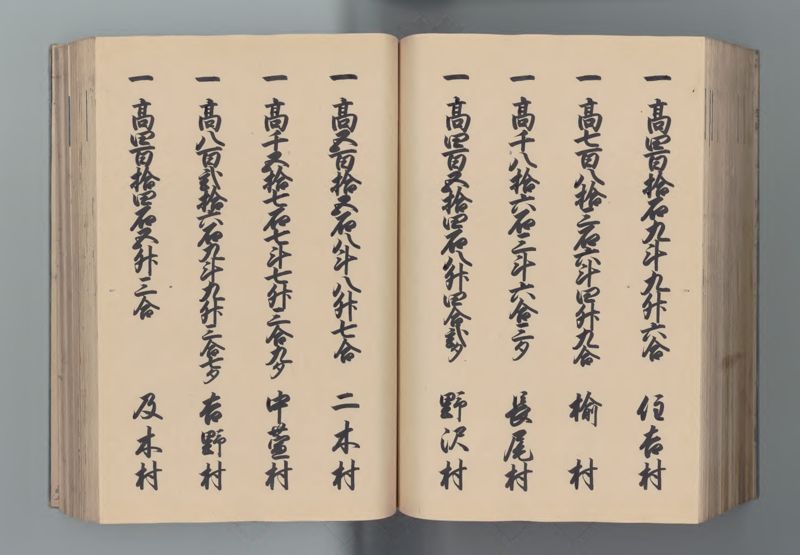 一 高四百拾石九斗九升六合 住吉村
一 高七百八拾三石六斗四升九合 楡村
一 高千八拾六石三斗六合三夕 長尾村
一 高四百五拾四石八升四合弐夕 野沢村
一 高五百拾五石八斗八升七合 二木村
一 高千五拾七石七斗七升三合九夕 中萱村
一 高八百弐拾六石九斗九升三合七夕 吉野村
一 高四百拾四石五升三合 及木村